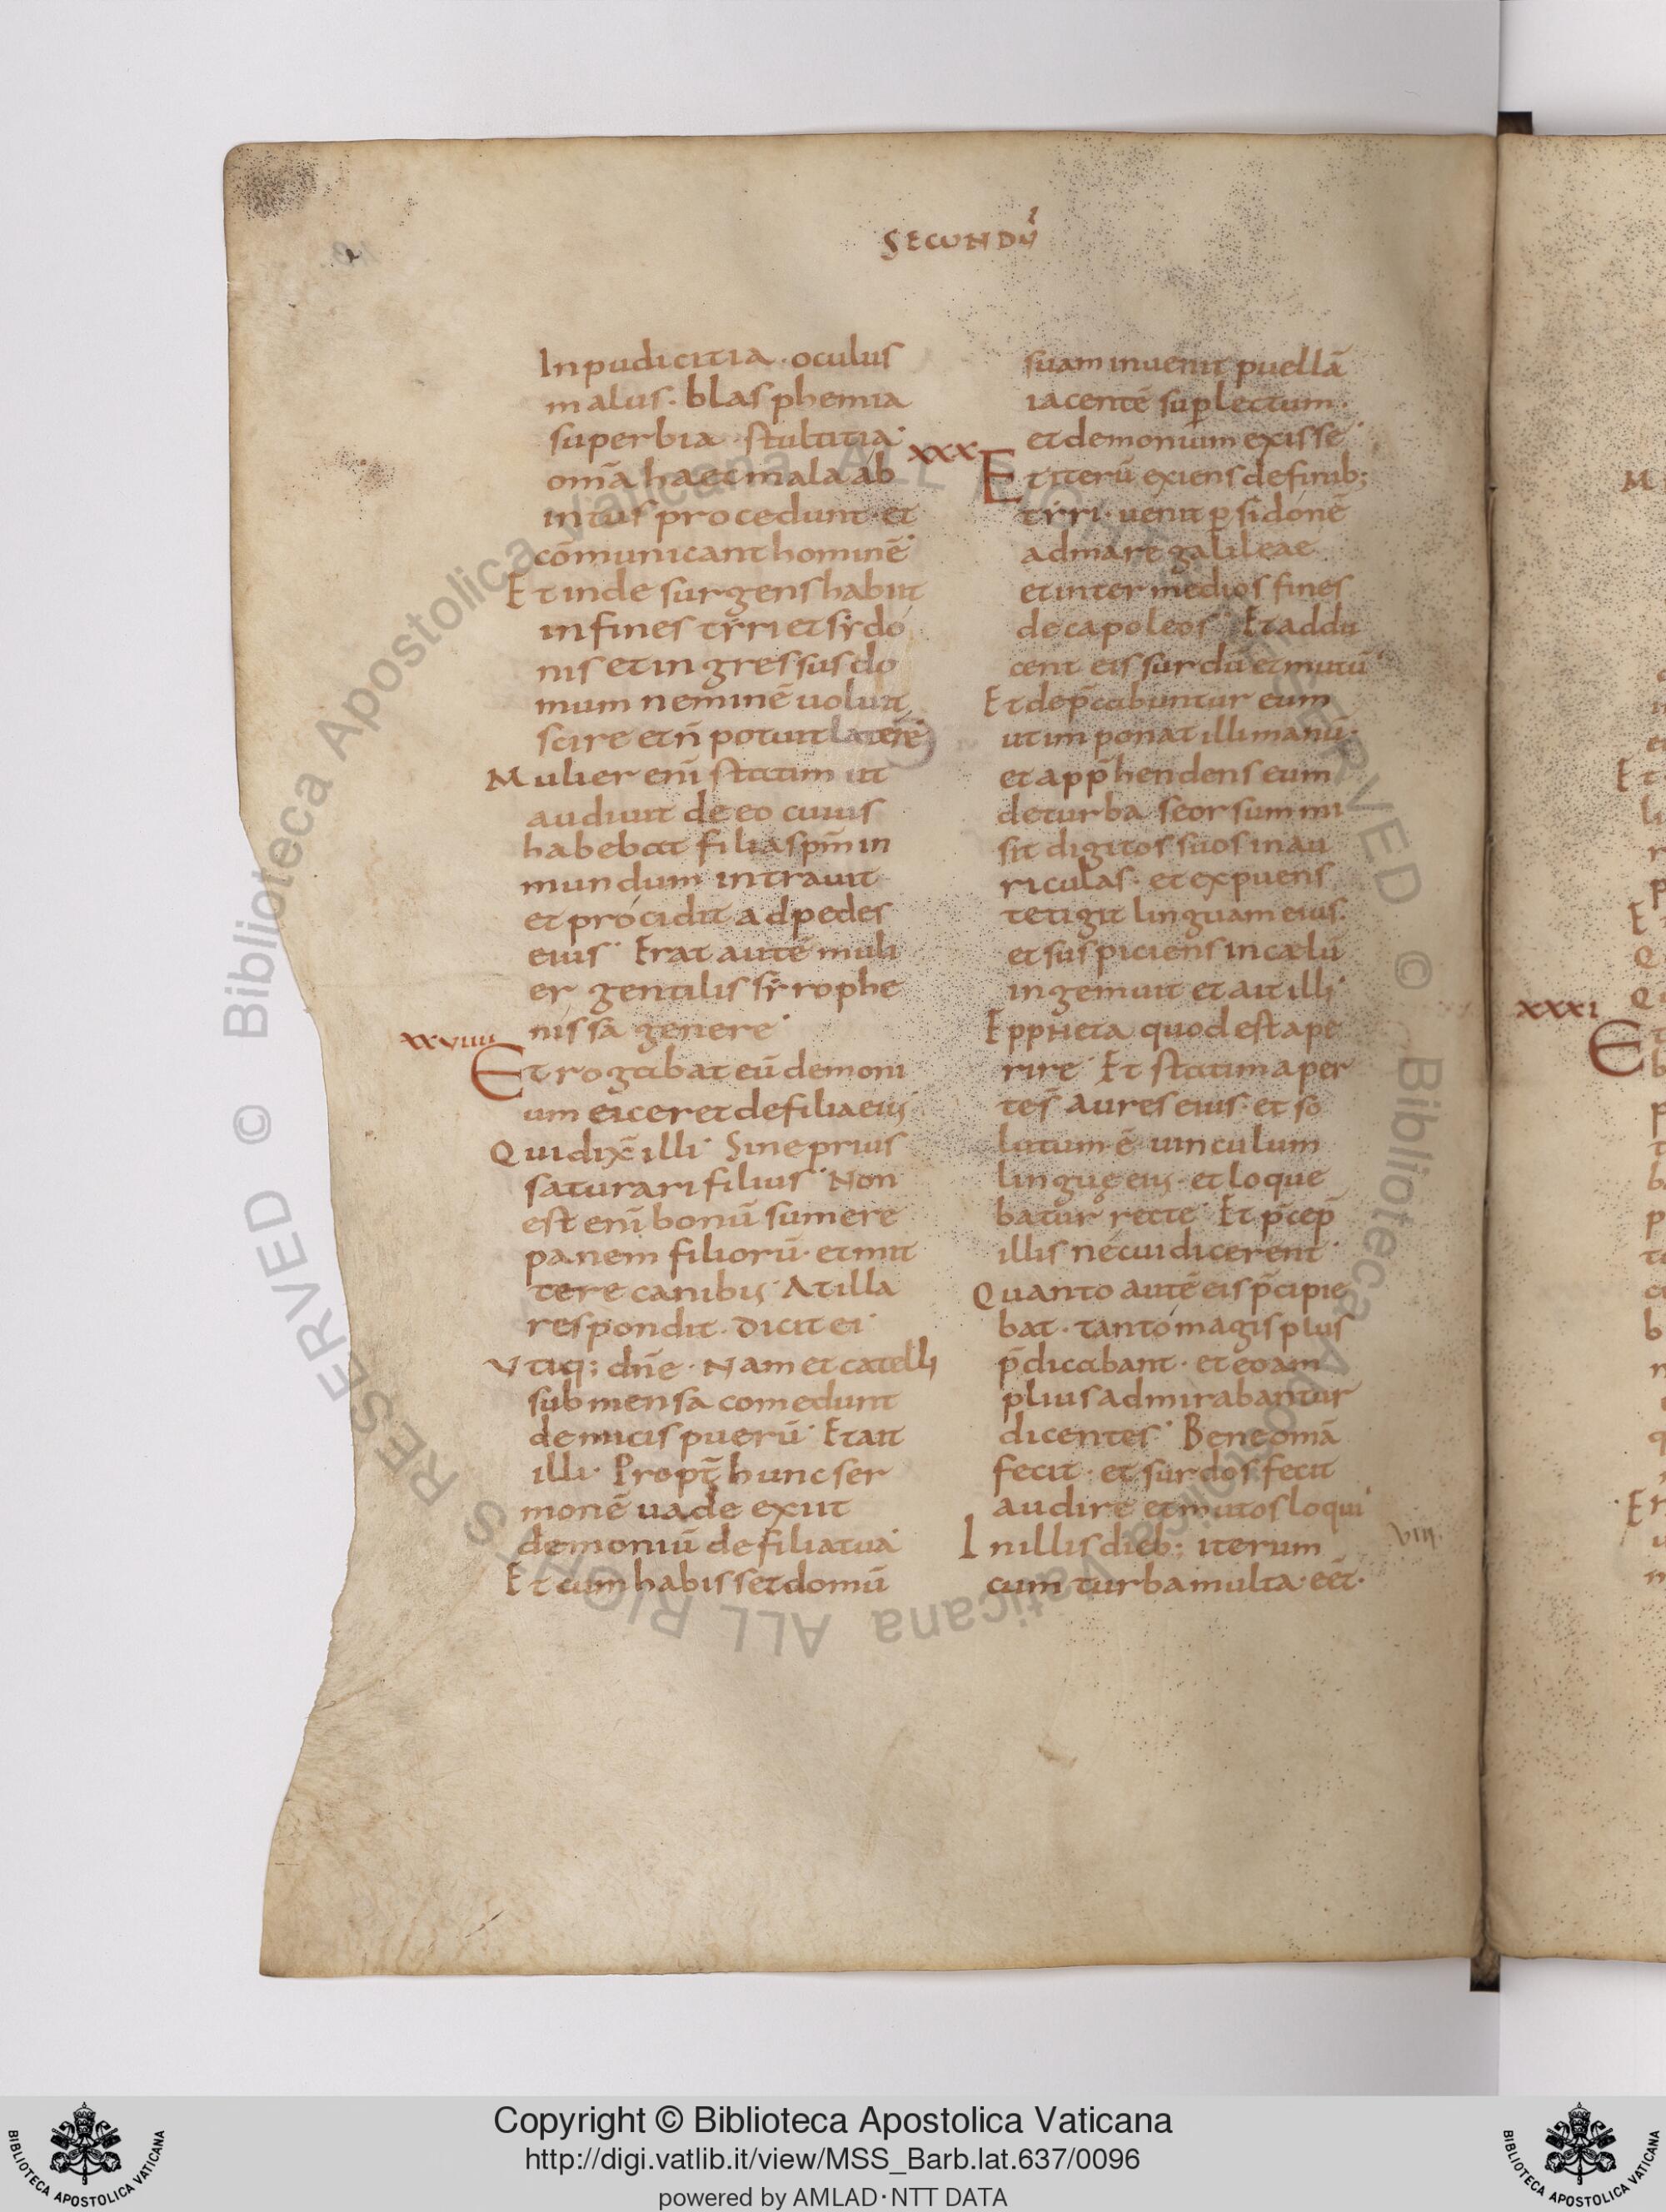 SECUNDŨ
Inpudicitia · oculus
malus · blasphemia
superbia · stultitia ·
om̄a haec mala ab
intus procedunt · et
cōmunicant hominē ·
Et inde surgens habiit
in fines tyri et sydo
nis et ingressus do
mum neminē uoluit
scire et n̄ potuit latere ·
Mulier enī statim ut
audiuit de eo cuius
habebat filia sp̄m in
mundum intrauit
et procidit ad pedes
eius · Erat autē muli
er gentilis syrophe
nissa genere ·
xxviiii
Et rogabat eū demoni
um eiceret de filia eiuꝫ
Qui dix̄ illi · Sine prius
saturari filius · Non
est enī bonū sumere
panem filiorū · et mit
tere canibuꝫ · At illa
respondit · dicit ei ·
Utiq; dn̄e · Nam et catelli
sub mensa comedunt
de micis puerū · Et ait
illi · Propt̄ hunc ser
monē uade exiit
demoniū de filia tua ·
Et cum habisset domū
suam inuenit puellā
iacentē sup̱ lectum ·
et demonium exisse ·
xxx
Et iterū exiens de finib;
tyri · uenit ꝑ sidonē
ad mare galileae
et inter medios fines
decapoleos · Et addu
cent eis surdū et mutū ·
Et dep̄cabuntur eum
ut imponat illi manū ·
et app̄hendens eum
de turba seorsum mi
sit digitos suos in au
riculas · et expuens
tetigit linguam eius ·
et suspiciens in cælū
ingemuit et ait illi ·
Eppheta quod est ape
rire · Et statim aper
tes aures eius · et so
lutum ē uinculum
linguę eiuꝫ · et loque
batur recte · Et p̄cep̄
illis ne cui dicerent ·
Quanto autē eis p̄cipie
bat · tanto magis plus
p̄dicabant · et eo am
plius admirabantur
dicentes · Bene om̄a
fecit · et surdos fecit
audire et mutos loqui ·
In illis dieb; iterum
cum turba multa · eēt ·
viii ·
xxxi
Copyright © Biblioteca Apostolica Vaticana
http://digi.vatlib.it/view/MSS_Barb.lat.637/0096
powered by AMLAD·NTT DATA
BIBLIOTECA APOSTOLICA VATICANA
BIBLIOTECA APOSTOLICA VATICANA
© Biblioteca Apostolica Vaticana ALL RIGHTS RESERVED © Biblioteca Apostolica Vaticana ALL RIGHTS RESERVED